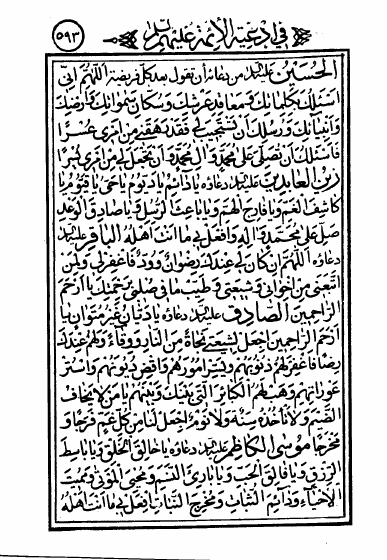 في ادعية الأئمة عليهم السلام ٥٩٣
الحسين عليه السلام من دعائه ان تقول بعد كل فريضة اللهم اني
اسئلك بكلماتك ومعاقد عرشك وسكان سمواتك وارضك
وانبيائك ورسلك ان تستجيب لي فقد رهقني من امري عسرا
فاسئلك ان تصلي على محمد وال محمد وان تجعل لي من امري يسرا
زين العابدين عليه السلام دعاؤه يا دائم يا ديموم يا حي يا قيوم يا
كاشف الغم ويا فارج الهم ويا باعث الرسل ويا صادق الوعد
صل على محمد واله وافعل بي ما انت اهله الباقر عليه السلام
دعاؤه اللهم ان كان لي عندك رضوان وود فاغفر لي ولمن
اتبعني من اخواني وشيعتي وطيب ما في صلبي برحمتك يا ارحم
الراحمين الصادق عليه السلام دعاؤه يا ديان غير متوان يا
ارحم الراحمين اجعل لشيعتي نجاة من النار ووقاء ولهم عندك
رضا فاغفر لهم ذنوبهم ويسر امورهم واقض ديونهم واستر
عوراتهم وهب لهم الكبائر التي بينك وبينهم يا من لا يخاف
الضيم ولا تاخذه سنة ولا نوم اجعل لنا من كل غم فرجا و
مخرجا موسى الكاظم عليه السلام دعاؤه يا خالق الخلق ويا باسط
الرزق ويا فالق الحب ويا بارئ النسم ومحيي الموتى ومميت
الاحياء ودائم الثبات ومخرج النبات افعل بي ما انت اهله